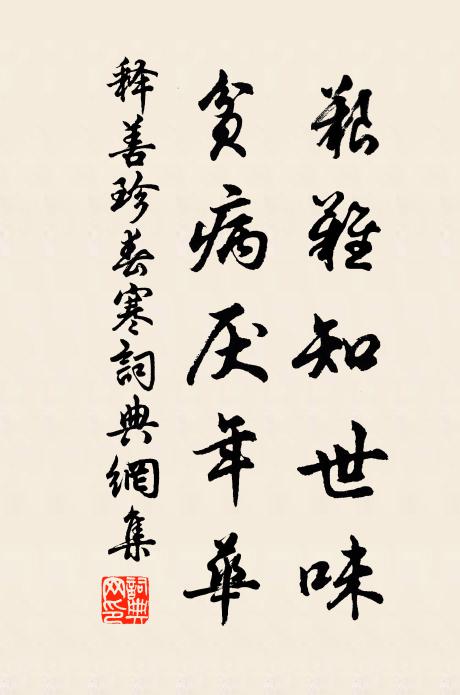 艱難知世味
貧病厌年華
释善珍春寒詞典網集
詞典網印